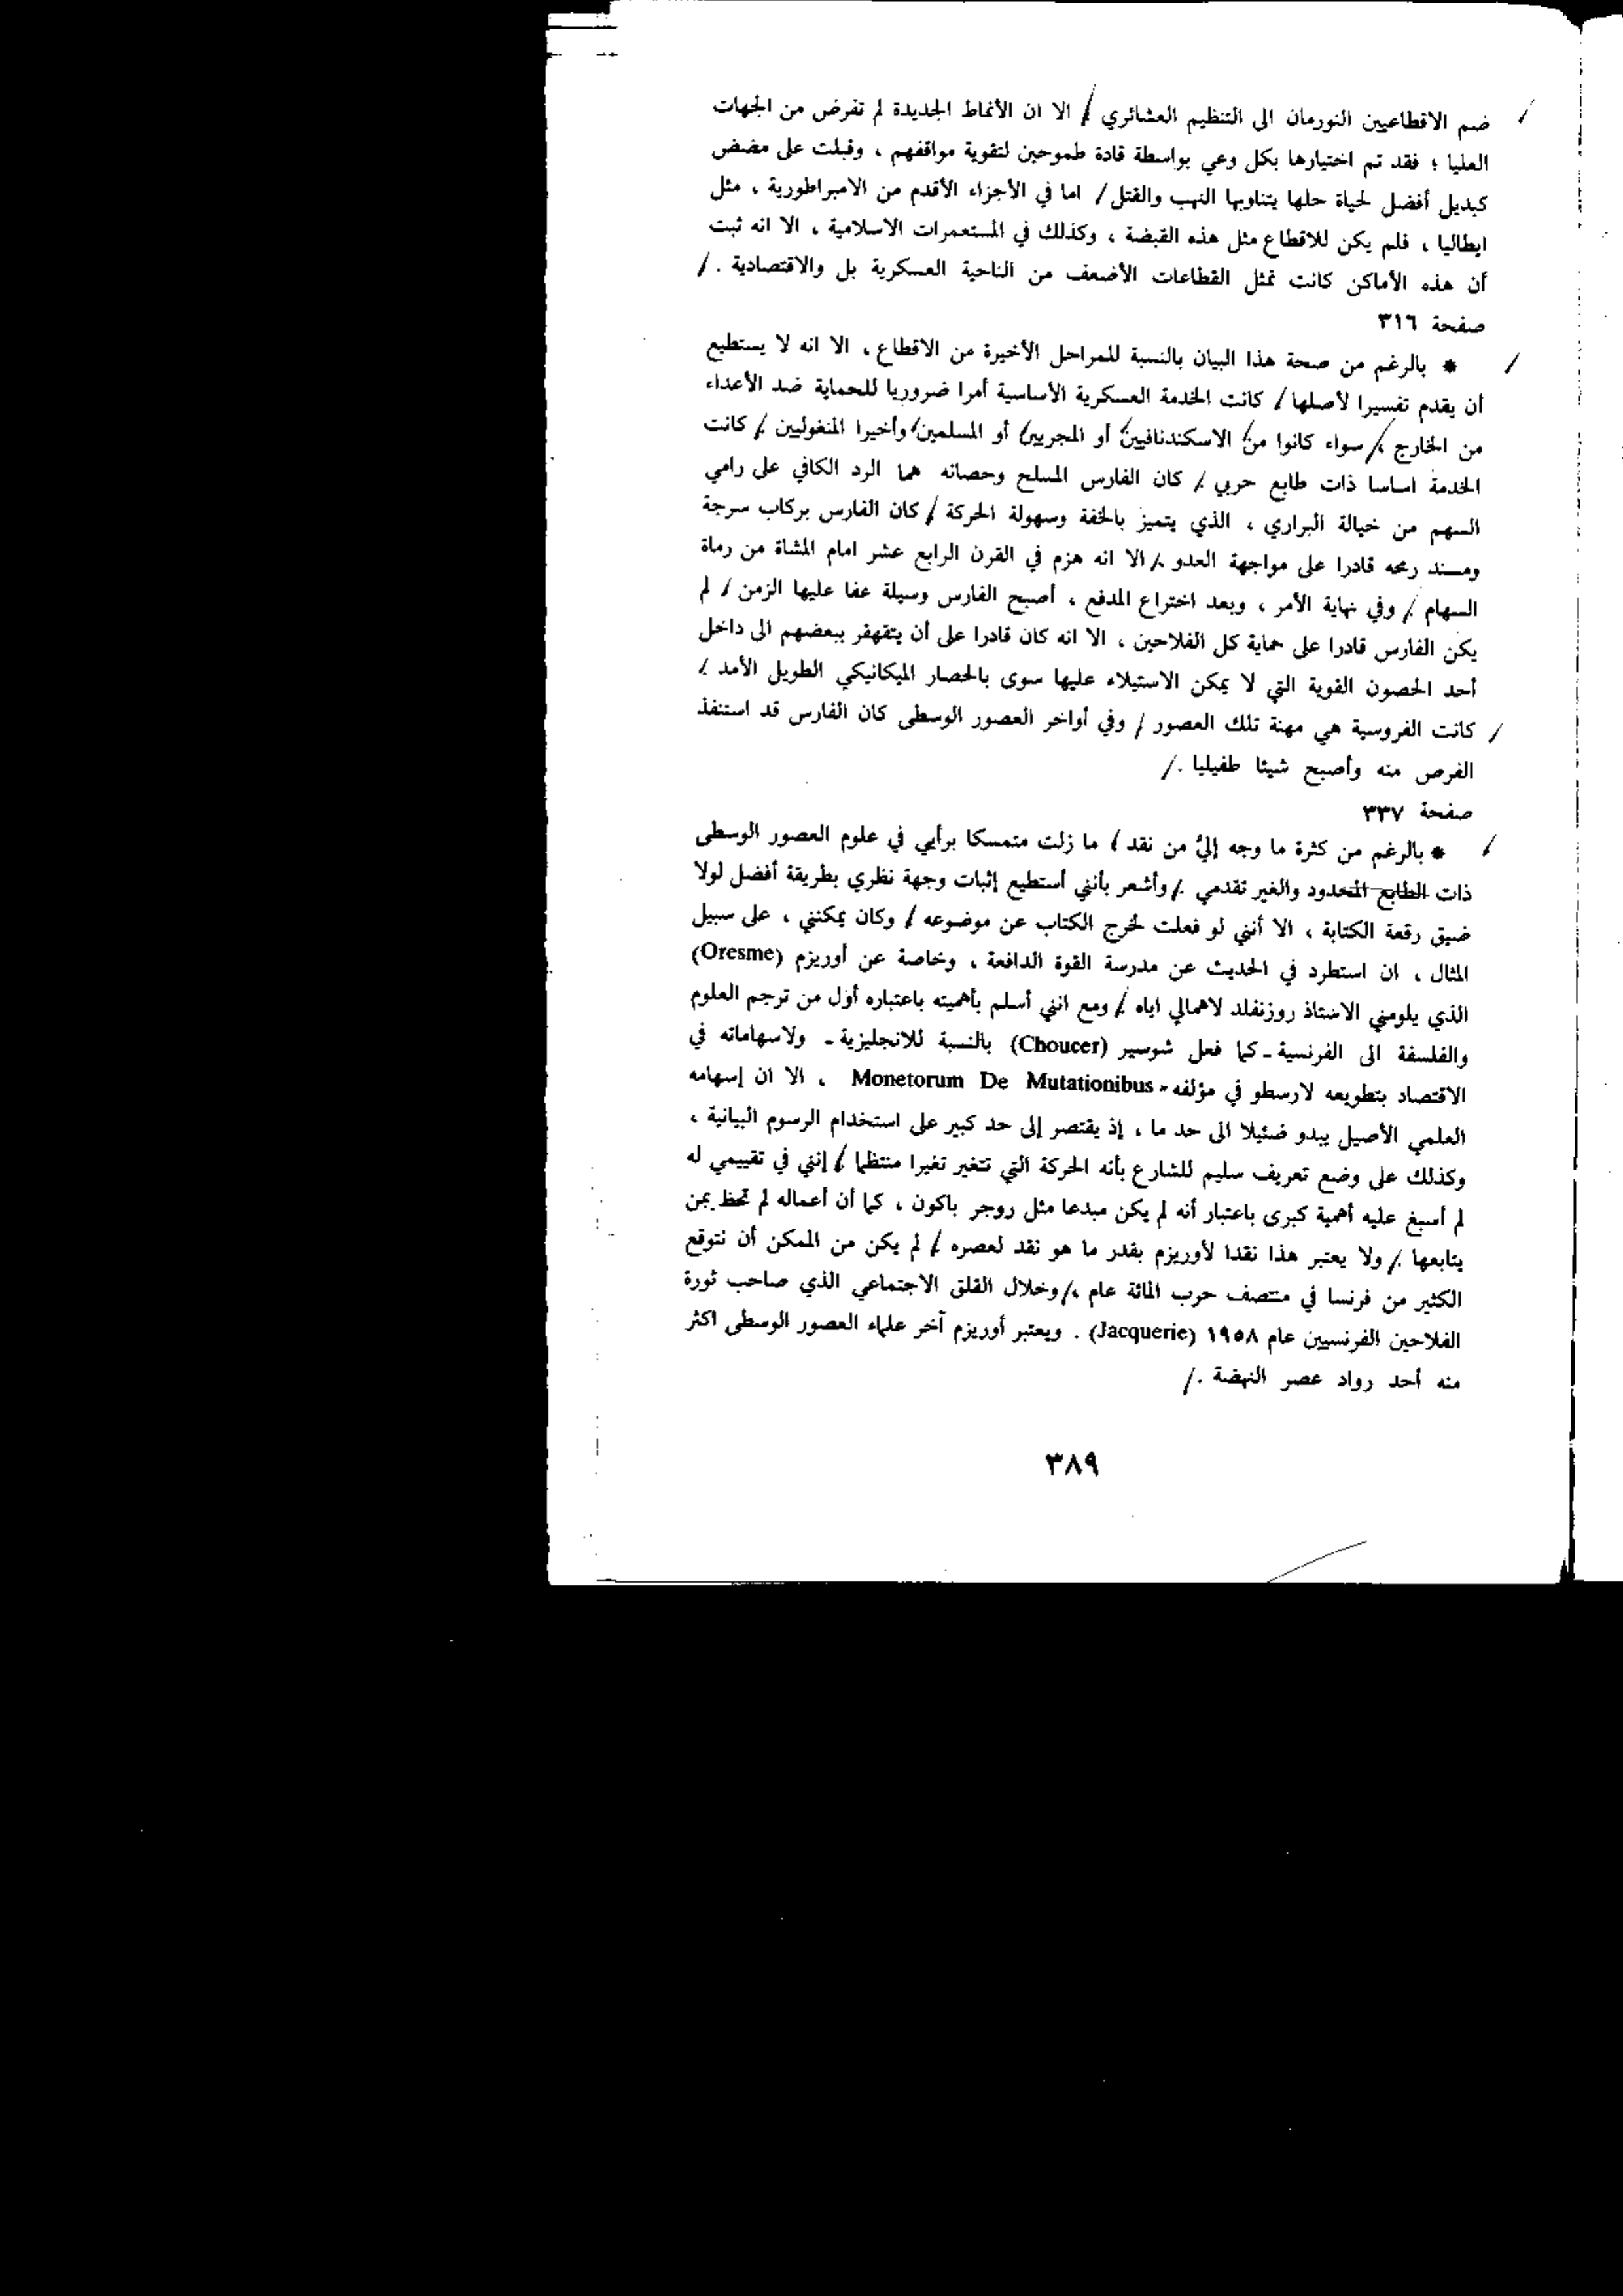 ضم الاقطاعيين النورمان الى التنظيم العشائري / الا ان الأنماط الجديدة لم تفرض من الجهات
العليا ؛ فقد تم اختيارها بكل وعي بواسطة قادة طموحين لتقوية مواقفهم ، وقبلت على مضض
كبديل أفضل لحياة حلها يتناوبها النهب والقتل / اما في الأجزاء الأقدم من الامبراطورية ، مثل
ايطاليا ، فلم يكن للاقطاع مثل هذه القبضة ، وكذلك في المستعمرات الاسلامية ، الا انه ثبت
أن هذه الأماكن كانت تمثل القطاعات الأضعف من الناحية العسكرية بل والاقتصادية . /
صفحة ٣١٦
* بالرغم من صحة هذا البيان بالنسبة للمراحل الأخيرة من الاقطاع ، الا انه لا يستطيع
أن يقدم تفسيرا لأصلها / كانت الخدمة العسكرية الأساسية أمرا ضروريا للحماية ضد الأعداء
من الخارج ، / سواء كانوا من الاسكندنافيين أو المجريين أو المسلمين وأخيرا المنغوليين . / كانت
الخدمة اساسا ذات طابع حربي . / كان الفارس المسلح وحصانه هما الرد الكافي على رامي
السهم من خيالة البراري ، الذي يتميز بالخفة وسهولة الحركة / كان الفارس بركاب سرجة
ومسند رمحه قادرا على مواجهة العدو . / الا انه هزم في القرن الرابع عشر امام المشاة من رماة
السهام . / وفي نهاية الأمر ، وبعد اختراع المدفع ، أصبح الفارس وسيلة عفا عليها الزمن / لم
يكن الفارس قادرا على حماية كل الفلاحين ، الا انه كان قادرا على أن يتقهقر ببعضهم الى داخل
أحد الحصون القوية التي لا يمكن الاستيلاء عليها سوى بالحصار الميكانيكي الطويل الأمد . /
كانت الفروسية هي مهنة تلك العصور / وفي أواخر العصور الوسطى كان الفارس قد استنفذ
الفرص منه وأصبح شيئا طفيليا . /
صفحة ٣٣٧
* بالرغم من كثرة ما وجه إليّ من نقد / ما زلت متمسكا برأيي في علوم العصور الوسطى
ذات الطابع المحدود والغير تقدمي . / وأشعر بأنني أستطيع إثبات وجهة نظري بطريقة أفضل لولا
ضيق رقعة الكتابة ، الا أنني لو فعلت لخرج الكتاب عن موضوعه / وكان يمكنني ، على سبيل
المثال ، ان استطرد في الحديث عن مدرسة القوة الدافعة ، وخاصة عن أوريزم (Oresme)
الذي يلومني الاستاذ روزنفلد لاهمالي اياه . / ومع انني أسلم بأهميته باعتباره أول من ترجم العلوم
والفلسفة الى الفرنسية - كما فعل شوسير (Choucer) بالنسبة للانجليزية - ولاسهاماته في
الاقتصاد بتطويعه لارسطو في مؤلفه - Monetorum De Mutationibus ، الا ان إسهامه
العلمي الأصيل يبدو ضئيلا الى حد ما ، إذ يقتصر إلى حد كبير على استخدام الرسوم البيانية ،
وكذلك على وضع تعريف سليم للشارع بأنه الحركة التي تتغير تغيرا منتظما / إنني في تقييمي له
لم أسبغ عليه أهمية كبرى باعتبار أنه لم يكن مبدعا مثل روجر باكون ، كما أن أعماله لم تحظ بمن
يتابعها . / ولا يعتبر هذا نقدا لأوريزم بقدر ما هو نقد لعصره / لم يكن من الممكن أن نتوقع
الكثير من فرنسا في منتصف حرب المائة عام ، / وخلال القلق الاجتماعي الذي صاحب ثورة
الفلاحين الفرنسيين عام ١٩٥٨ (Jacquerie) . ويعتبر أوريزم آخر علماء العصور الوسطى اكثر
منه أحد رواد عصر النهضة . /
٣٨٩